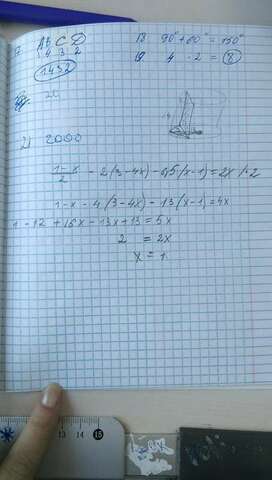 17 A B C D 18 90° + 60° = 150°
1 4 3 2 19 4 · 2 = 8
1432
21 2000
1-x/2 - 2(3-4x) - 6,5(x-1) = 2x |·2
1-x - 4(3-4x) - 13(x-1) = 4x
1 - 12 + 16x - 13x + 13 = 5x
2 = 2x
x = 1.
13 14 15